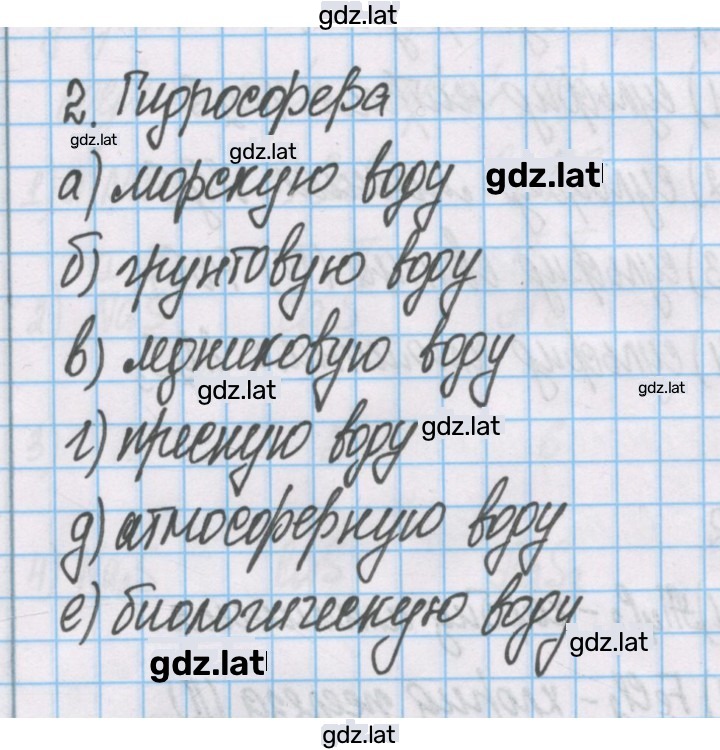 gdz.lat
2. Гидросфера
gdz.lat
gdz.lat
а) морскую воду gdz.lat
б) грунтовую воду
в) ледниковую воду
gdz.lat
gdz.lat
г) пресную воду gdz.lat
д) атмосферную воду
е) биологическую воду
gdz.lat
gdz.lat
gdz.lat